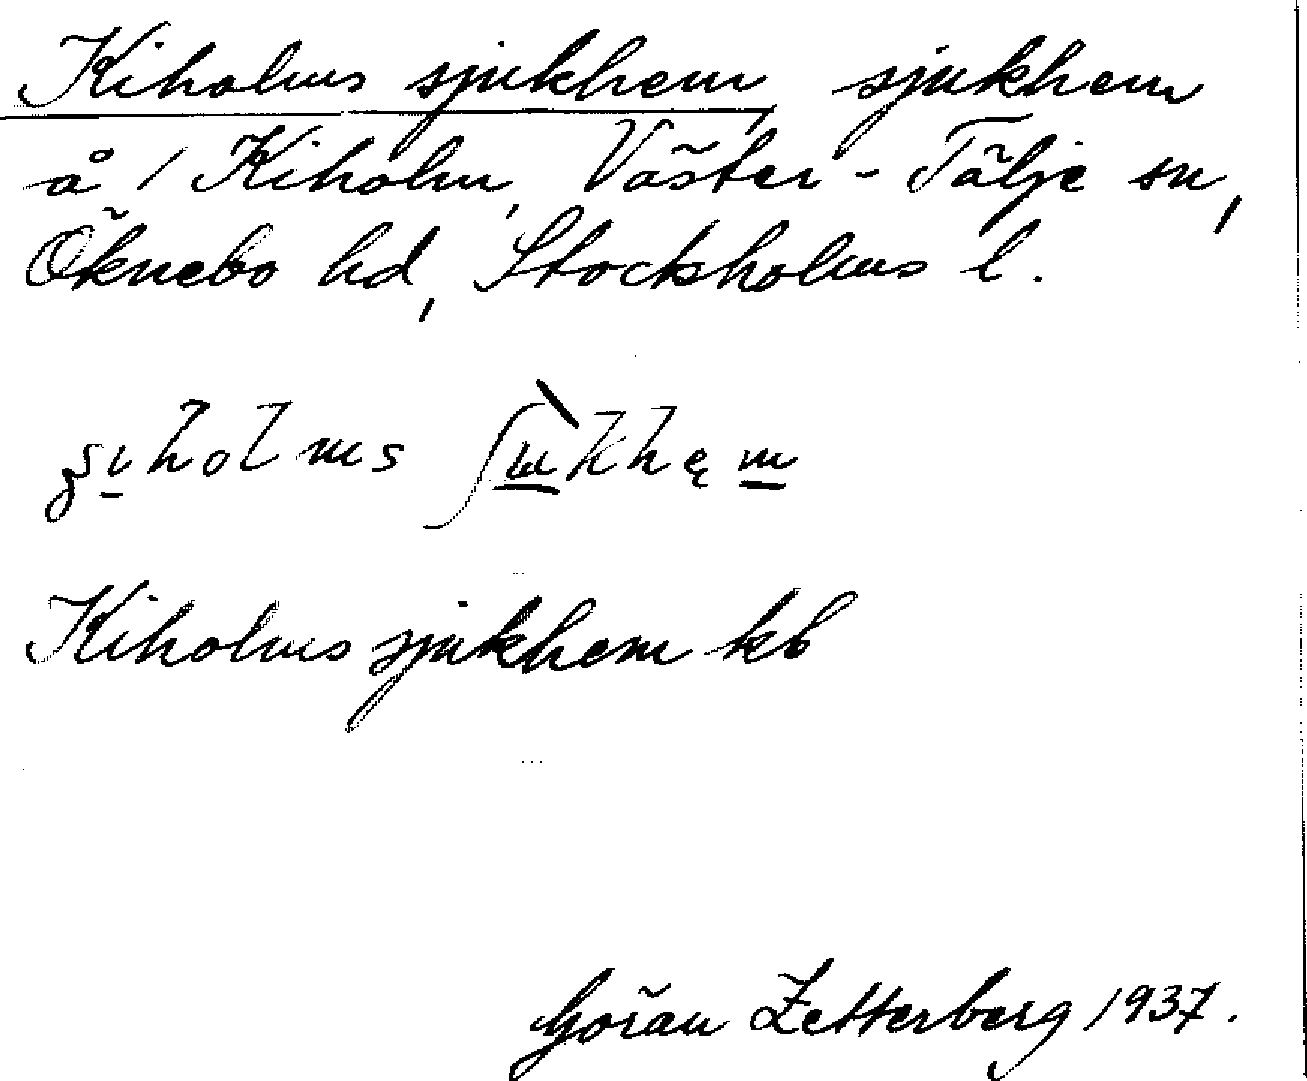 Kiholms sjukhem, sjukhem
å 1 Kiholm, Väster-Tälje sn,
Öknebo hd, Stockholms l.
Kiholms sjukhem kb
Göran Zetterberg 1937.